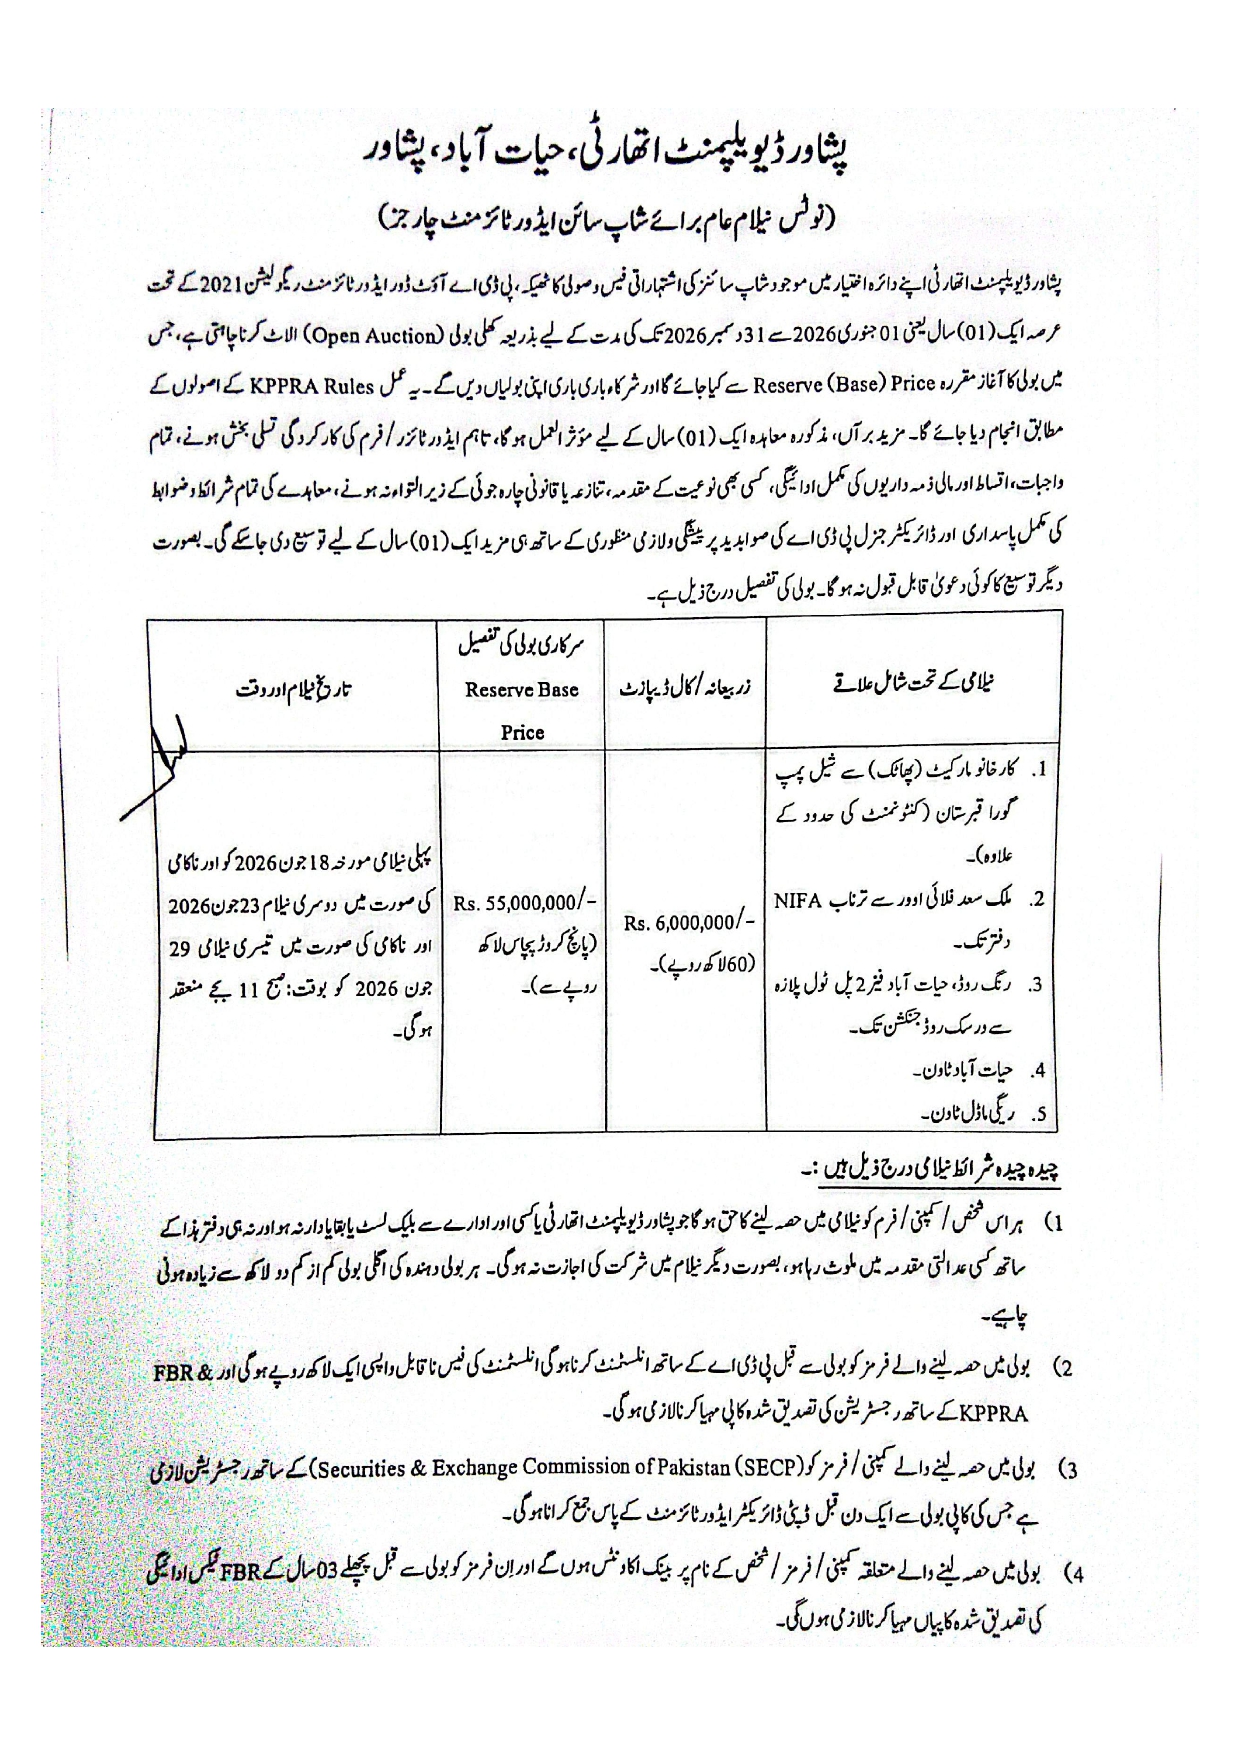 پشاور ڈیویلپمنٹ اتھارٹی، حیات آباد، پشاور
(نوٹس نیلام عام برائے شاپ سائن ایڈورٹائزمنٹ چارجز)
پشاور ڈیویلپمنٹ اتھارٹی اپنے دائرہ اختیار میں موجود شاپ سائنز کی اشتہاراتی فیس وصولی کا ٹھیکہ، پی ڈی اے آؤٹ ڈور ایڈورٹائزمنٹ ریگولیشن 2021 کے تحت
عرصہ ایک (01) سال یعنی 01 جنوری 2026 سے 31 دسمبر 2026 تک کی مدت کے لیے بذریعہ کھلی بولی (Open Auction) الاٹ کرنا چاہتی ہے، جس
میں بولی کا آغاز مقررہ Reserve (Base) Price سے کیا جائے گا اور شرکاء باری باری اپنی بولیاں دیں گے۔ یہ عمل KPPRA Rules کے اصولوں کے
مطابق انجام دیا جائے گا۔ مزید برآں، مذکورہ معاہدہ ایک (01) سال کے لیے مؤثر العمل ہوگا، تاہم ایڈورٹائزر/فرم کی کارکردگی تسلی بخش ہونے، تمام
واجبات، اقساط اور مالی ذمہ داریوں کی مکمل ادائیگی، کسی بھی نوعیت کے مقدمہ، تنازعہ یا قانونی چارہ جوئی کے زیر التواء نہ ہونے، معاہدے کی تمام شرائط و ضوابط
کی مکمل پاسداری اور ڈائریکٹر جنرل پی ڈی اے کی صوابدید پر پیشگی ولازمی منظوری کے ساتھ ہی مزید ایک (01) سال کے لیے توسیع دی جاسکے گی۔ بصورت
دیگر توسیع کا کوئی دعویٰ قابل قبول نہ ہوگا۔ بولی کی تفصیل درج ذیل ہے۔
نیلامی کے تحت شامل علاقے
زر بیعانہ / کال ڈیپازٹ
سرکاری بولی کی تفصیل
Reserve Base
Price
تاریخ نیلام اور وقت
1. کارخانو مارکیٹ (پھاٹک) سے شیل پمپ
گورا قبرستان (کنٹونمنٹ کی حدود کے
علاوہ)۔
2. ملک سعد فلائی اوور سے ترناب NIFA
دفتر تک۔
3. رنگ روڈ، حیات آباد فیز 2 پل ٹول پلازہ
سے ورسک روڈ جنکشن تک۔
4. حیات آباد ٹاون۔
5. ریگی ماڈل ٹاون۔
Rs. 6,000,000/-
(60 لاکھ روپے)۔
Rs. 55,000,000/-
(پانچ کروڑ پچاس لاکھ
روپے سے)۔
پہلی نیلامی مورخہ 18 جون 2026 کو اور ناکامی
کی صورت میں دوسری نیلام 23 جون 2026
اور ناکامی کی صورت میں تیسری نیلامی 29
جون 2026 کو بوقت: صبح 11 بجے منعقد
ہوگی۔
چیدہ چیدہ شرائط نیلامی درج ذیل ہیں :۔
1) ہر اس شخص / کمپنی / فرم کو نیلامی میں حصہ لینے کا حق ہوگا جو پشاور ڈیویلپمنٹ اتھارٹی یا کسی اور ادارے سے بلیک لسٹ یا بقایادار نہ ہو اور نہ ہی دفتر ہذا کے
ساتھ کسی عدالتی مقدمہ میں ملوث رہا ہو، بصورت دیگر نیلام میں شرکت کی اجازت نہ ہوگی۔ ہر بولی دہندہ کی اگلی بولی کم از کم دو لاکھ سے زیادہ ہونی
چاہیے۔
2) بولی میں حصہ لینے والے فرمز کو بولی سے قبل پی ڈی اے کے ساتھ انلسٹمنٹ کرنا ہوگی انلسٹمنٹ کی فیس ناقابل واپسی ایک لاکھ روپے ہوگی اور FBR &
KPPRA کے ساتھ رجسٹریشن کی تصدیق شدہ کاپی مہیا کرنا لازمی ہوگی۔
3) بولی میں حصہ لینے والے کمپنی / فرمز کو (Securities & Exchange Commission of Pakistan (SECP کے ساتھ رجسٹریشن لازمی
ہے جس کی کاپی بولی سے ایک دن قبل ڈپٹی ڈائریکٹر ایڈورٹائزمنٹ کے پاس جمع کرانا ہوگی۔
4) بولی میں حصہ لینے والے متعلقہ کمپنی / فرمز / شخص کے نام پر بینک اکاونٹس ہوں گے اور اِن فرمز کو بولی سے قبل پچھلے 03 سال کے FBR ٹیکس ادائیگی
کی تصدیق شدہ کاپیاں مہیا کرنا لازمی ہوں گی۔